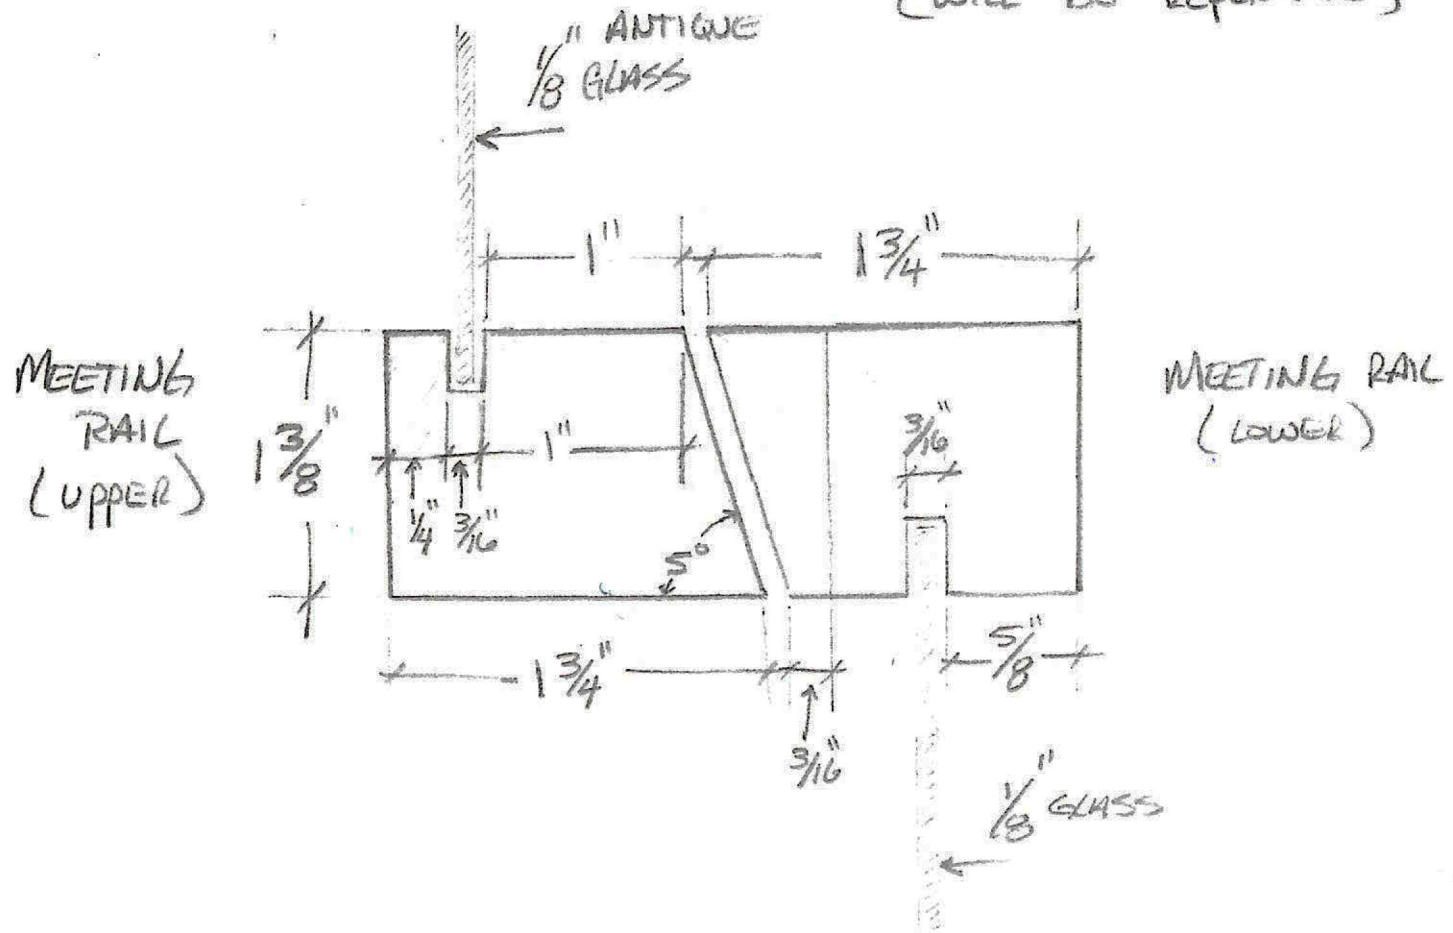 (WILL BE
1/8" ANTIQUE
GLASS
1"
1 3/4"
MEETING
RAIL
(UPPER)
1 3/8"
1"
1/4"
3/16"
5°
3/16"
MEETING RAIL
(LOWER)
1 3/4"
3/16"
5/8"
1/8" GLASS